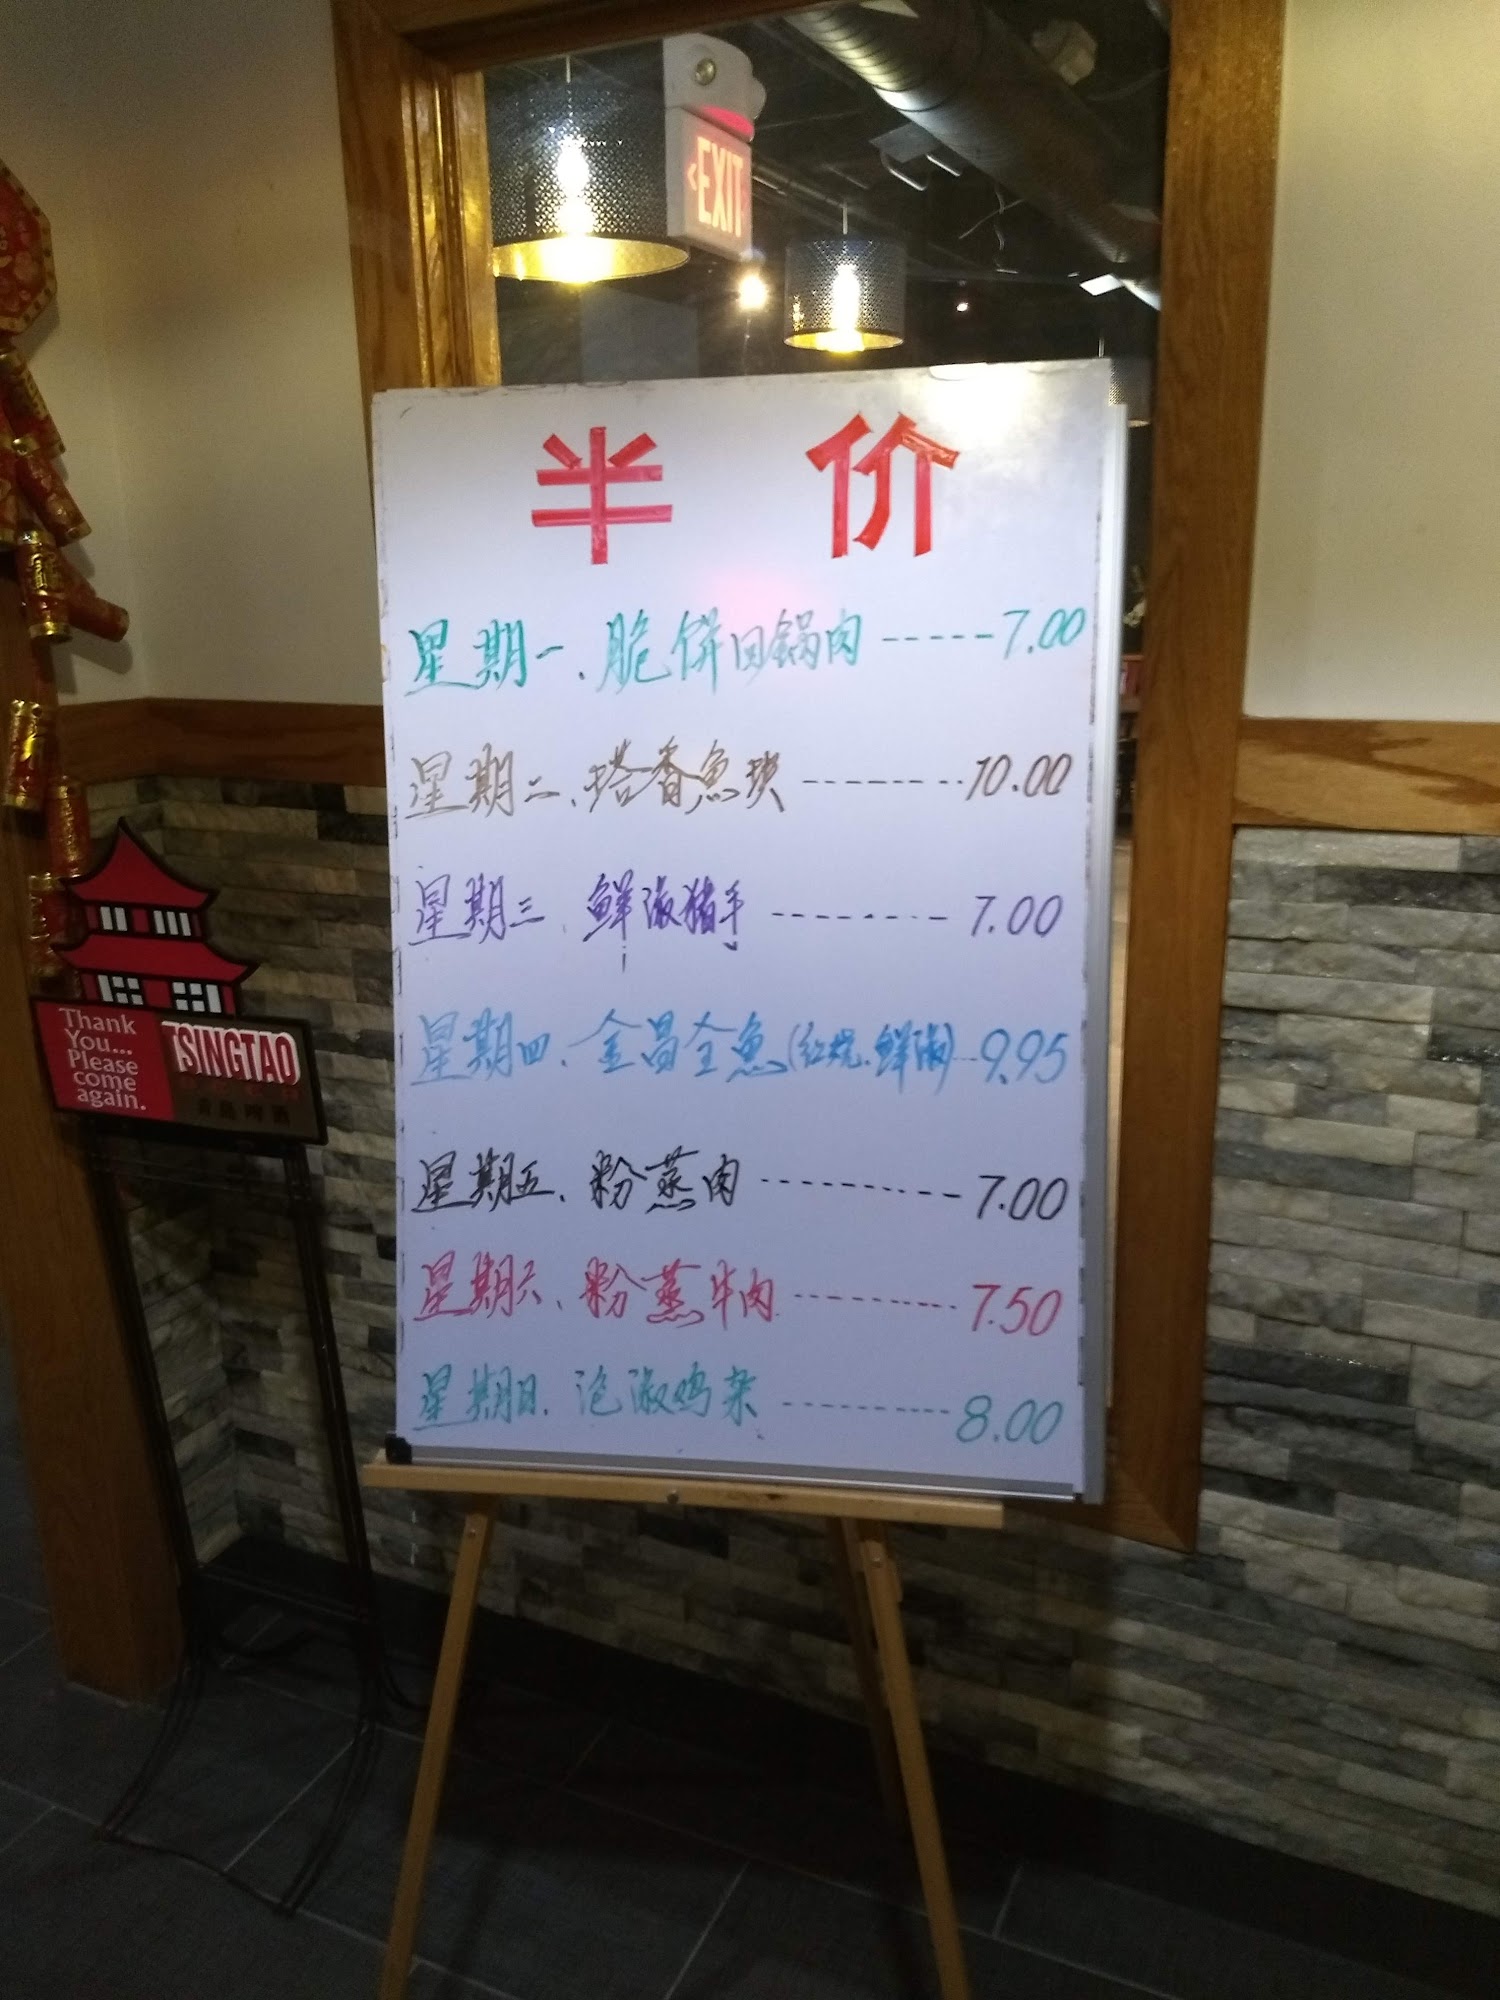 EXIT
半 价
星期一、脆饼回锅肉-----7.00
星期二、塔香魚块--------10.00
星期三、鲜椒猪手--------7.00
星期四、金昌全魚(红烧、鲜椒)--9.95
星期五、粉蒸肉----------7.00
星期六、粉蒸牛肉---------7.50
星期日、泡椒鸡杂---------8.00
Thank
You...
Please
come
again.
TSINGTAO
青島啤酒